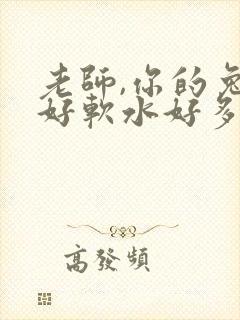 老師,你的兔
好軟水好多
高發頻